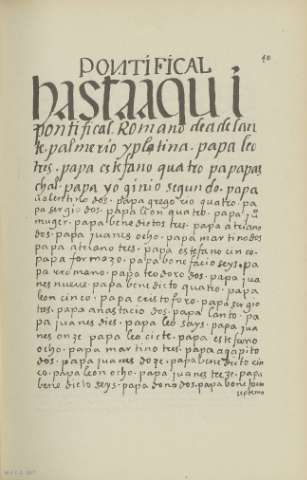 40
PONTIFICAL
hastaaqui
pontifical. Romano deadelan
te. palmerio yplatina. papa leo
tres. papa estefano quatro papapas
chal. papa yoginio segundo. papa
ualentino dos. papa gregorio quatro. pa
pa sergio dos. papa leon quatro. papa ju
muger. papa benedictos tres. papa atriano
dos. papa juanes ocho. papa martino dos
papa atriano tres. papa estefano cinco.
papa formozo. papa bonefacio seys. pa
pa rromano. papa teodoro dos. papa jua
nes nueue. papa benedicto quatro. papa
leon cinco. papa cristoforo. papa sergio
tos. papa anastacio dos. papa lanto. pa
pa juanes dies. papa leo says. papa jua
nes onze papa leo ciete. papa estefano
ocho. papa martino tres. papa agapito
dos. papa juanes doze. papa benedicto cin
co. papa leon ocho. papa juanes treze. papa
benedicto seys. papa dono dos. papa bonefacio
septimo